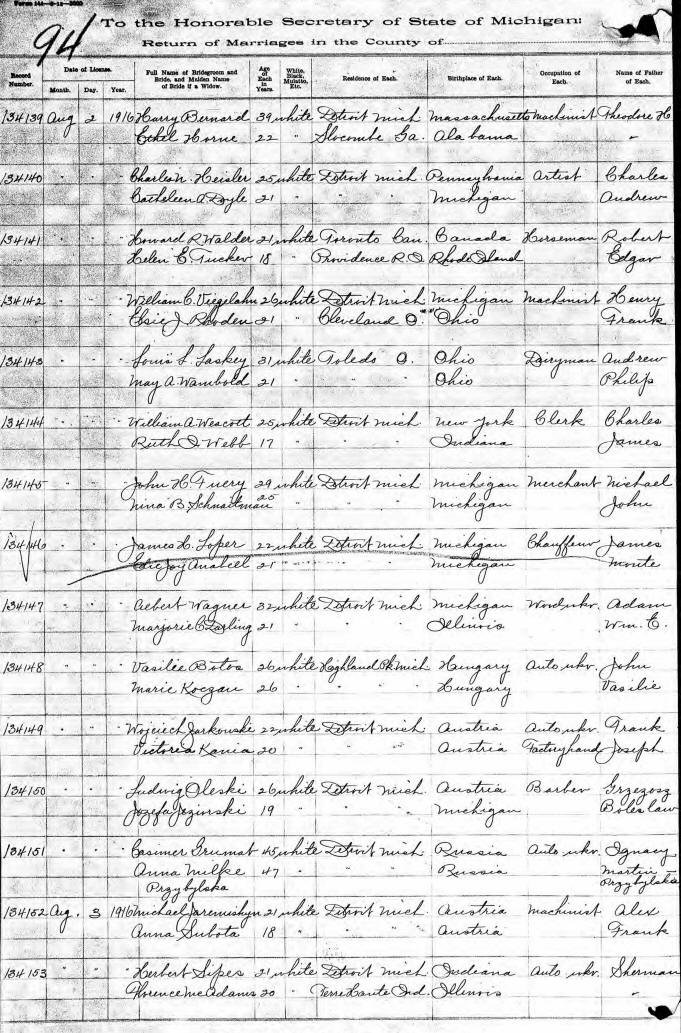 94
To the Honorable Secretary of State of Michigan:
Return of Marriages in the County of
Record Number. Date of License. Month. Day. Year. Full Name of Bridegroom and Bride, and Maiden Name of Bride if a Widow. Age of Each in Years. White, Black, Mulatto, Etc. Residence of Each. Birthplace of Each. Occupation of Each. Name of Father of Each.
134139 Aug 2 1916 Harry Bernard 39 white Detroit Mich Massachusetts Machinist Theodore H
Ethel Horne 22 " Slocombe Ga. Alabama "
134140 " " " Charles N. Heisler 25 white Detroit Mich. Pennsylvania Artist Charles
Catheleen A Doyle 21 " " " Michigan Andrew
134141 " " " Howard R. Walder 21 white Toronto Can. Canada Horseman Robert
Helen E. Tucker 18 " Providence R.I. Rhode Island Edgar
134142 " " " William C. Viegelahn 26 white Detroit Mich Michigan Machinist Henry
Elsie J. Rhoden 21 " Cleveland O. Ohio Frank
134143 " " " Louis L. Laskey 31 white Toledo O. Ohio Dairyman Andrew
May A Wambold 21 " " " Ohio Philip
134144 " " " William A. Wescott 25 white Detroit Mich New York Clerk Charles
Ruth I. Webb 17 " " " Indiana James
134145 " " " John H. Fuery 29 white Detroit Mich Michigan Merchant Michael
Nina B. Schnaitman 25 " " " Michigan John
134146 " " " James H. Loper 22 white Detroit Mich Michigan Chauffeur James
Joy 21 " " " Michigan Monte
134147 " " " Albert Wagner 32 white Detroit Mich Michigan Woodwkr. Adam
Marjorie C. 21 " " " Illinois Wm. E.
134148 " " " Vasilie Botos 26 white Highland Pk Mich Hungary Auto wkr. John
Marie Koczan 26 " " " Hungary Vasilie
134149 " " " Wojciech Jarkowski 22 white Detroit Mich Austria Auto wkr. Frank
Victoria Kania 20 " " " Austria Factoryhand Joseph
134150 " " " Ludwig Oleski 26 white Detroit Mich. Austria Barber Grzegosz
Jozefa Jezinski 19 " " " Michigan Boleslaw
134151 " " " Casimer Grumat 45 white Detroit Mich Russia Auto wkr. Ignacy
Anna Milke 47 " " " Russia Martin
Przybylska Przybylski
134152 Aug. 3 1916 Michael Jaremishyn 21 white Detroit Mich. Austria Machinist Alex
Anna Subota 18 " " " Austria Frank
134153 " " " Herbert Sipes 21 white Detroit Mich Indiana Auto wkr. Sherman
Florence McAdams 20 " Terre Haute Ind. Illinois "